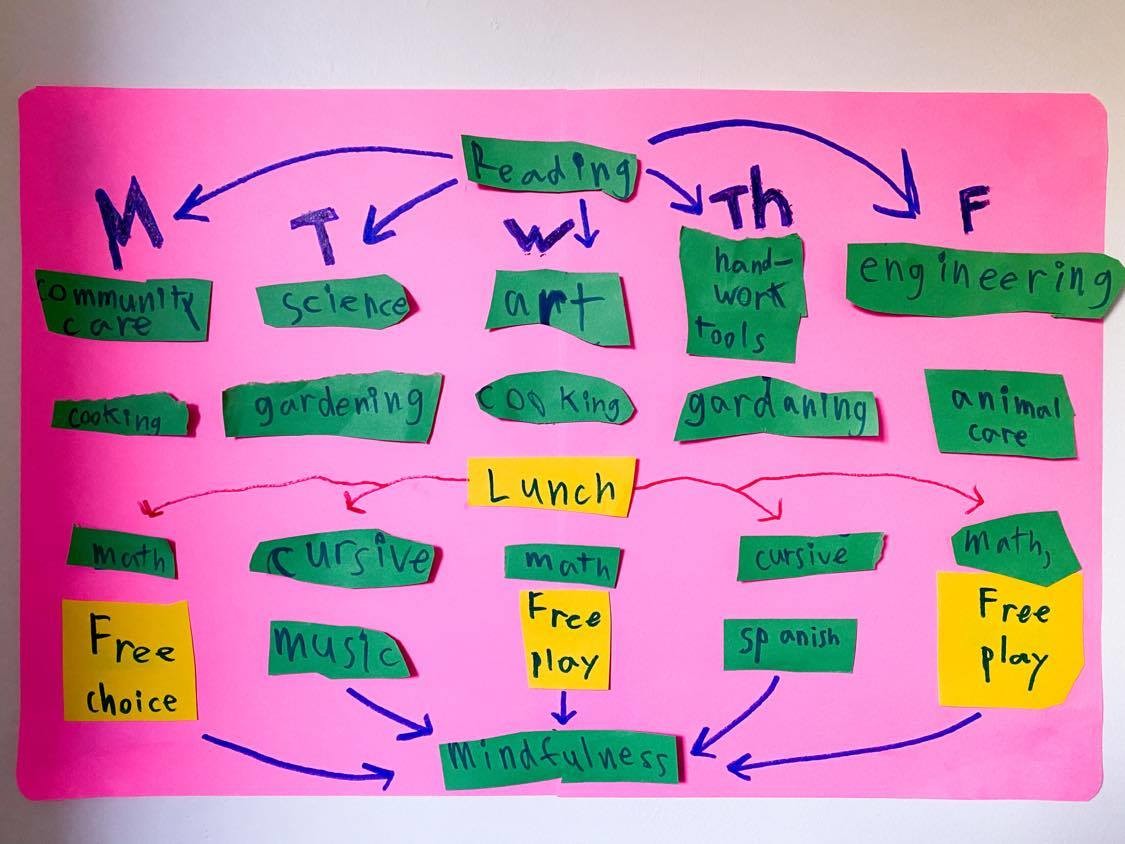 Reading
M
T
W
Th
F
community
care
science
art
hand-
work
tools
engineering
cooking
gardening
cooking
gardaning
animal
care
Lunch
math
cursive
math
cursive
math,
Free
choice
music
Free
play
spanish
Free
play
mindfulness